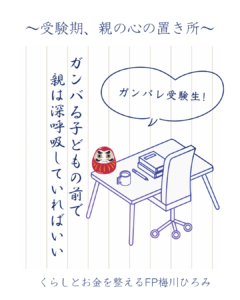 ～受験期、親の心の置き所～
ガンバる子どもの前で
親は深呼吸していればいい
ガンバレ受験生！
くらしとお金を整えるFP梅川ひろみ